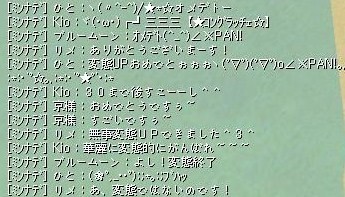 [ミンナデ] ひと:ヽ(〃^ー^)/★*☆オメデトー
[ミンナデ] Klo:ヾ(・ω・) 三三三【★コングラッチェ☆】
[ミンナデ] ブルームーン:オメデト(^_^)∠※PAN!
[ミンナデ] リメ:ありがとうございまーす!
[ミンナデ] ひと:変態UPおめでとぉぉぉヽ(▽)(▽)ノ∠※PAN!
[ミンナデ] Klo:30まで後すこーーし^^
[ミンナデ] 京様:おめでとうですぅ~
[ミンナデ] 京様:すごいですぅ~
[ミンナデ] リメ:無事変態UPできました^3^
[ミンナデ] Klo:華麗に変態的にがんばれ~~~
[ミンナデ] ブルームーン:よし!変態終了
[ミンナデ] ひと:
[ミンナデ] リメ:あ、変態ではないのです!